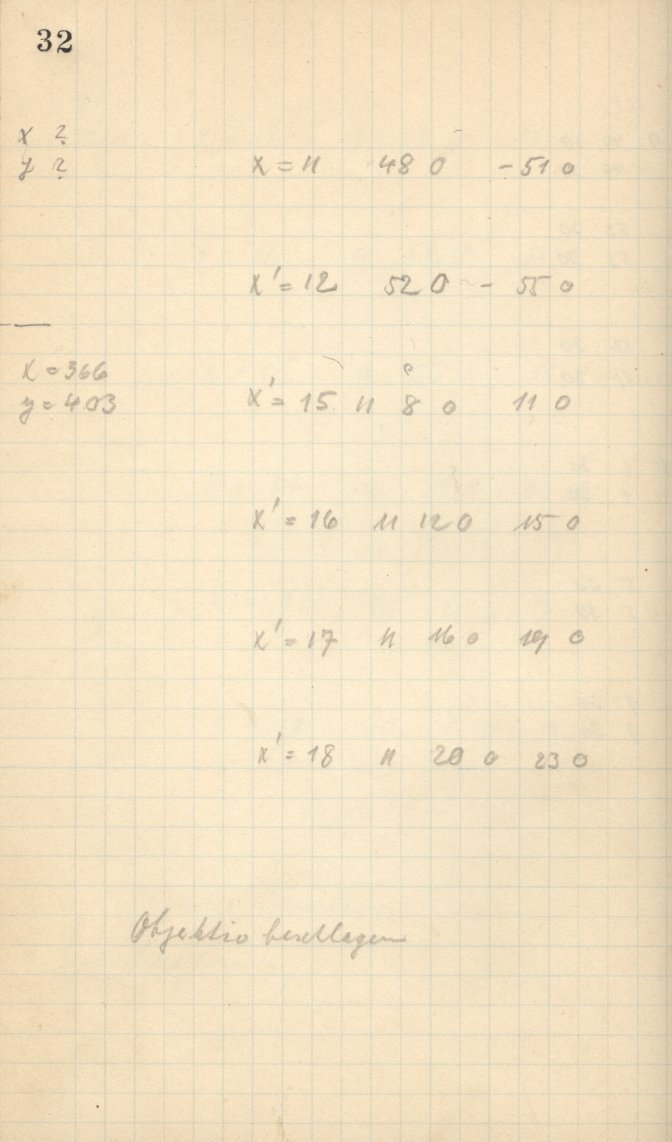 32
x ?
y ? x = 11 48 0 - 51 0
x' = 12 52 0 - 55 0
x = 366
y = 403 x' = 15 11 8 0 11 0
x' = 16 11 12 0 15 0
x' = 17 11 16 0 19 0
x' = 18 11 20 0 23 0
Objektiv beschlagen